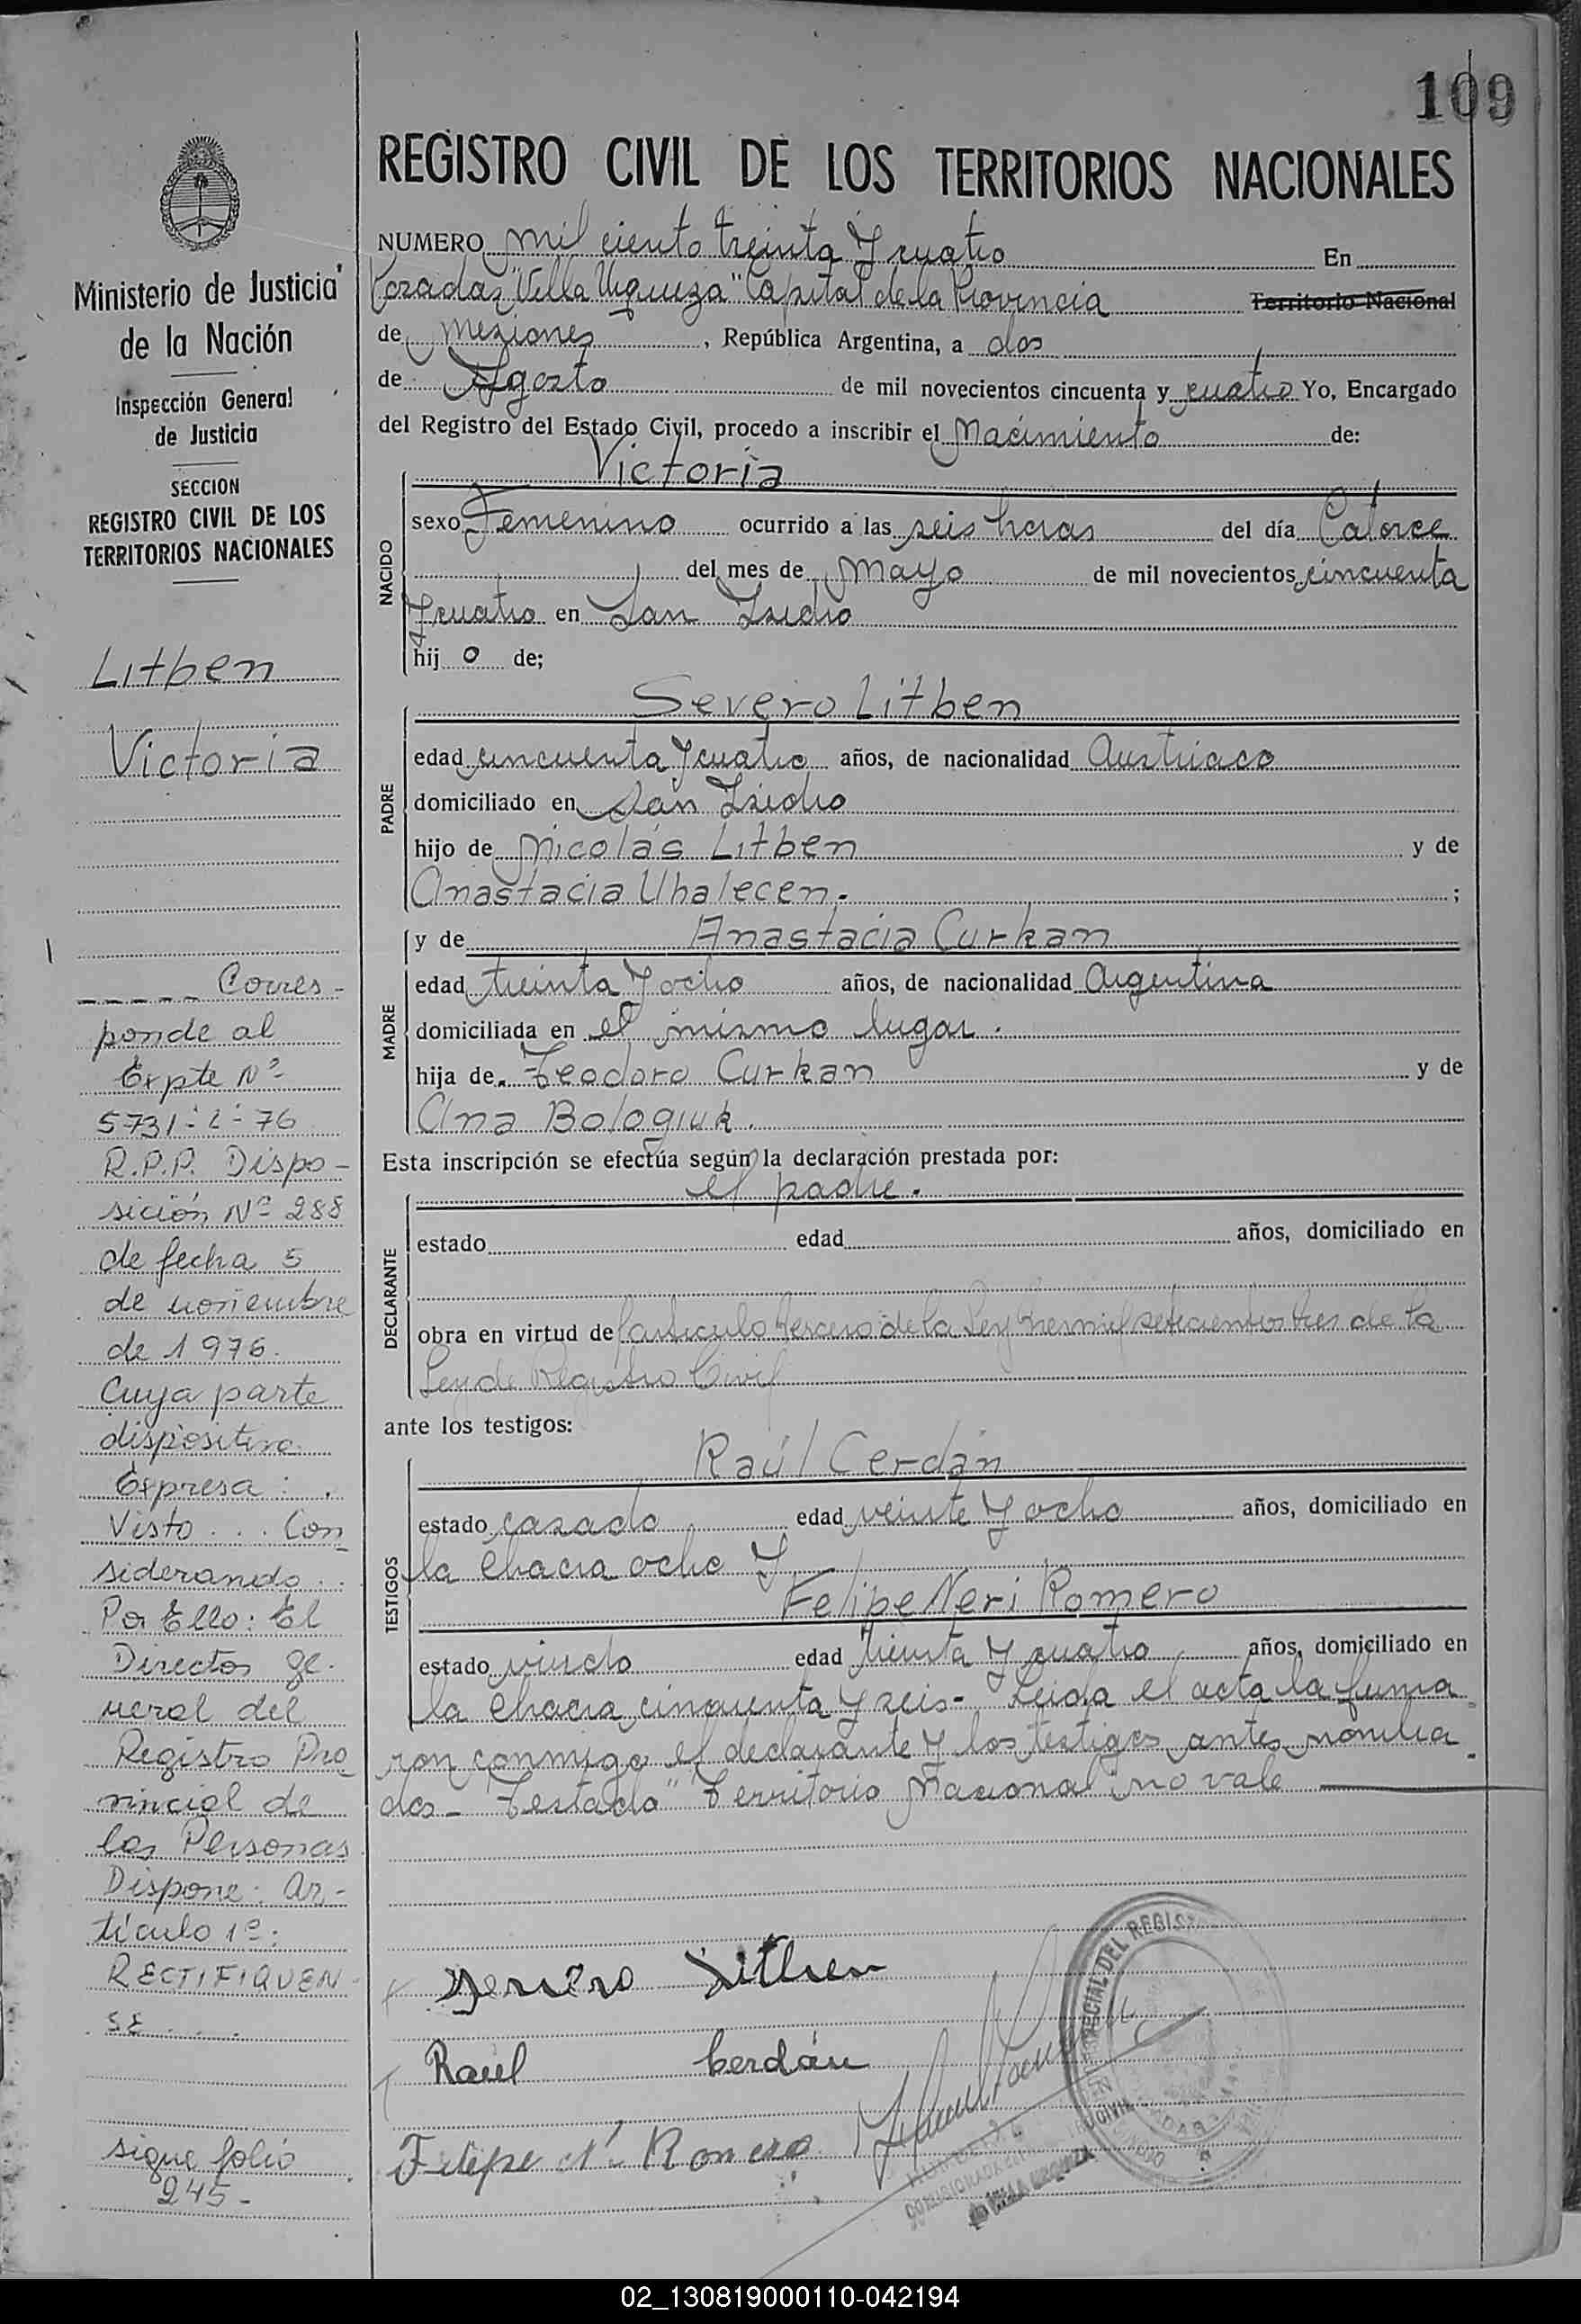 109
REGISTRO CIVIL DE LOS TERRITORIOS NACIONALES
NUMERO mil ciento treinta y cuatro En
Posadas "Villa Urquiza" Capital de la Provincia Territorio Nacional
de Misiones, República Argentina, a dos
de Agosto de mil novecientos cincuenta y cuatro Yo, Encargado
del Registro del Estado Civil, procedo a inscribir el Nacimiento de:
NACIDO
Victoria
sexo Femenino ocurrido a las seis horas del día Catorce
del mes de Mayo de mil novecientos cincuenta
y cuatro en San Isidro
hij o de;
PADRE
Severo Litben
edad cincuenta y cuatro años, de nacionalidad Austriaco
domiciliado en San Isidro
hijo de Nicolás Litben y de
Anastacia Uhalecen. ;
MADRE
y de Anastacia Curkan
edad treinta y ocho años, de nacionalidad Argentina
domiciliada en el mismo lugar.
hija de Teodoro Curkan y de
Ana Bologiuk.
Esta inscripción se efectúa según la declaración prestada por:
DECLARANTE
el padre.
estado edad años, domiciliado en
obra en virtud de articulo tercero de la Ley de la
Ley de Registro Civil
ante los testigos:
TESTIGOS
Raúl Cerdán
estado casado edad veinte y ocho años, domiciliado en
la Chacra ocho y
Felipe Neri Romero
estado viudo edad treinta y cuatro años, domiciliado en
la Chacra cincuenta y seis- Leida el acta la firma
ron conmigo el declarante y los testigos antes nombra
dos- Testado "Territorio Nacional" no vale
Severo Litben
Raúl Cerdán
Felipe N. Romero
ESPECIAL DEL REGIS
CIVIL
VILLA URQUIZA
Ministerio de Justicia
de la Nación
Inspección General
de Justicia
SECCION
REGISTRO CIVIL DE LOS
TERRITORIOS NACIONALES
Litben
Victoria
----- Corres-
ponde al
Expte Nº
5731-L-76
R.P.P. Dispo-
sición Nº 288
de fecha 5
de noviembre
de 1976.
Cuya parte
dispositiva
Expresa: .
Visto... Con
siderando..
Por Ello: El
Director ge-
neral del
Registro Pro
vincial de
las Personas
Dispone: Ar-
tículo 1º:
RECTIFIQUEN
SE....
sigue folio
245-
02_130819000110-042194